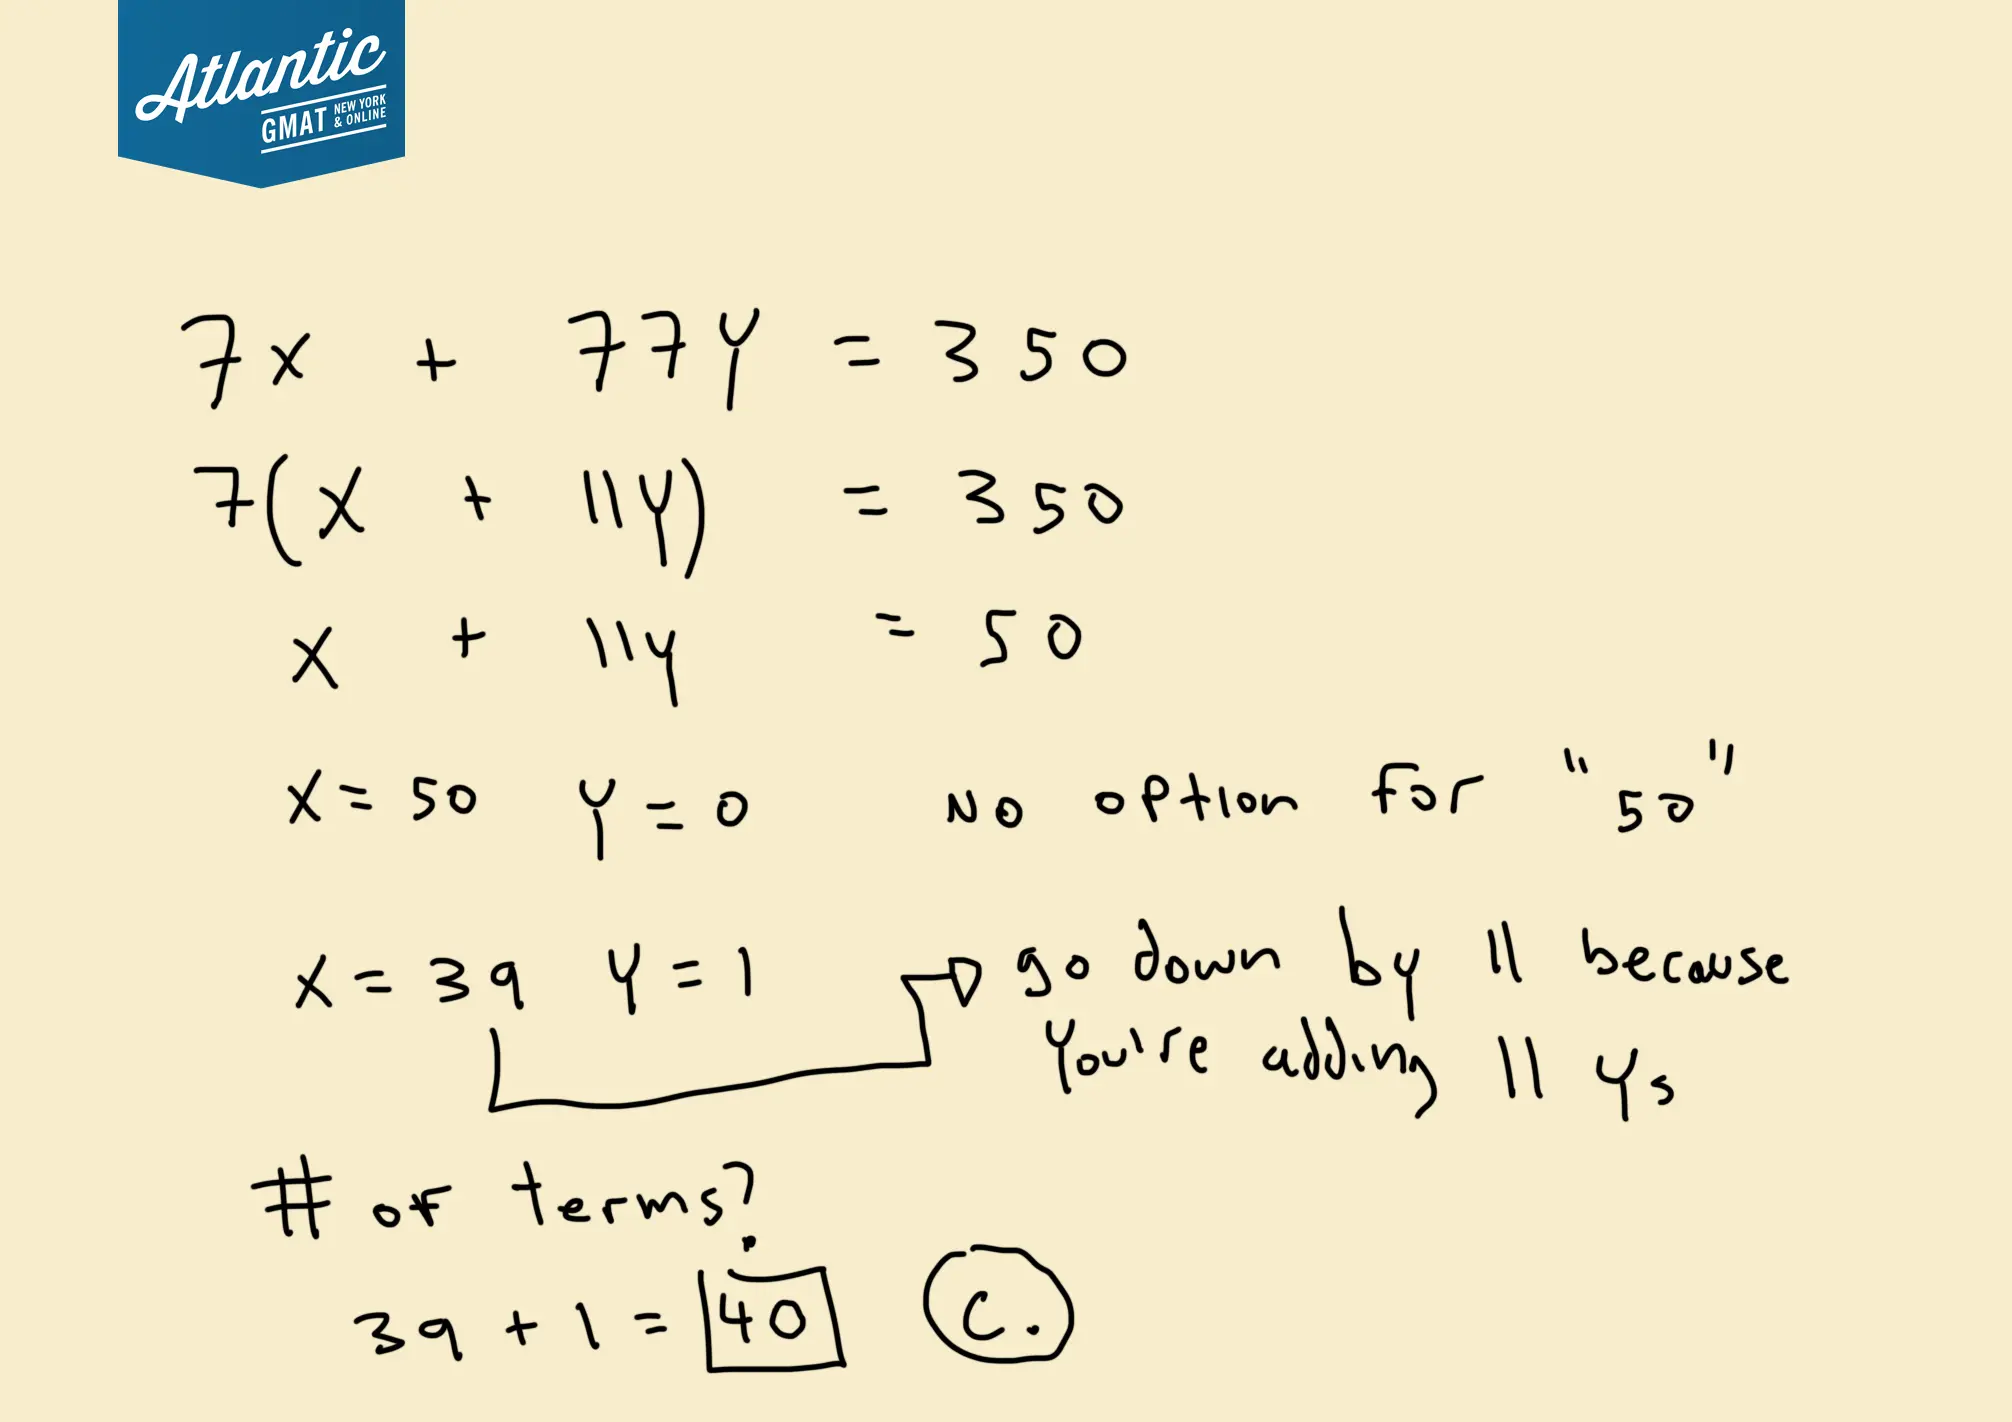 Atlantic
GMAT NEW YORK & ONLINE
7x + 77y = 350
7(x + 11y) = 350
x + 11y = 50
x = 50 y = 0 No option for "50"
x = 39 y = 1 go down by 11 because
you're adding 11 ys
# of terms?
39 + 1 = 40 C.